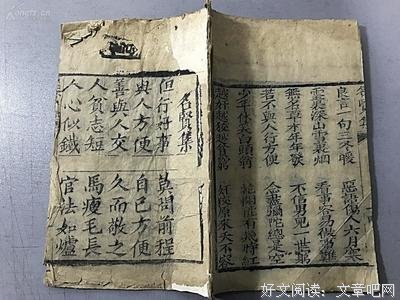 良言一句三冬暖 惡語傷人六月寒
雲裏深山雪裏烟 看事容易做事難
無名草木年年發 不信男兒一世窮
若不與人行方便 念盡彌陀總是空
少年休笑白頭翁 花開能有幾時紅
越奸越狡越貧窮 奸狡原來天不容
名賢集
但行好事 莫問前程
與人方便 自己方便
善與人交 久而敬之
人貧志短 馬瘦毛長
人心似鐵 官法如爐
好文阅读：文章吧网